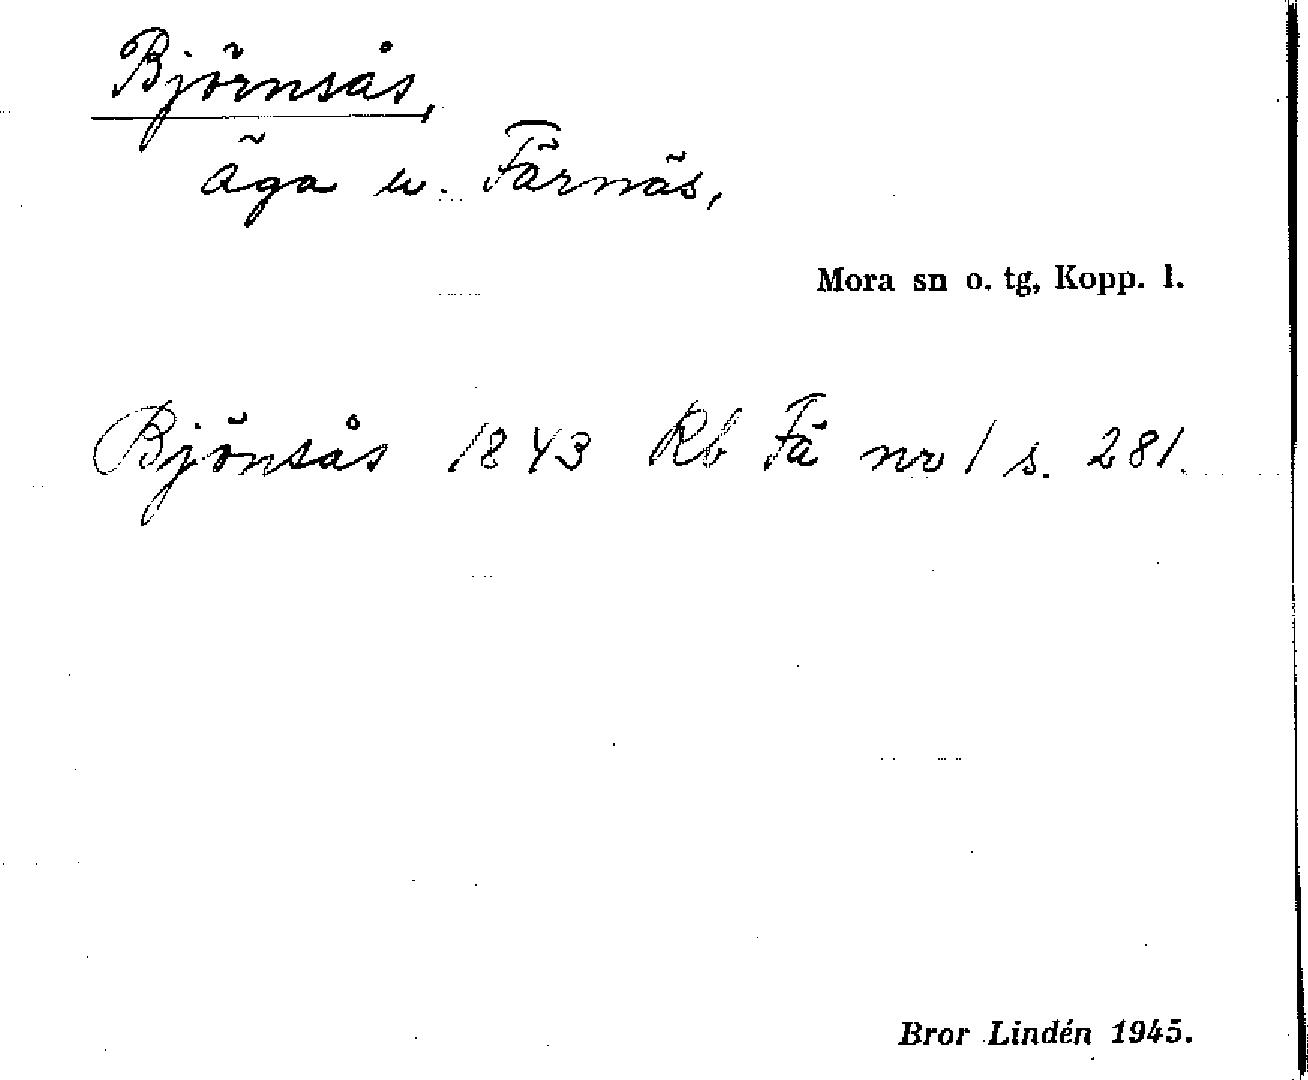 Björnsås,
äga u. Färnäs,
Mora sn o. tg, Kopp. l.
Björnsås 1843 Rb Fä nr 1 s. 281.
Bror Lindén 1945.